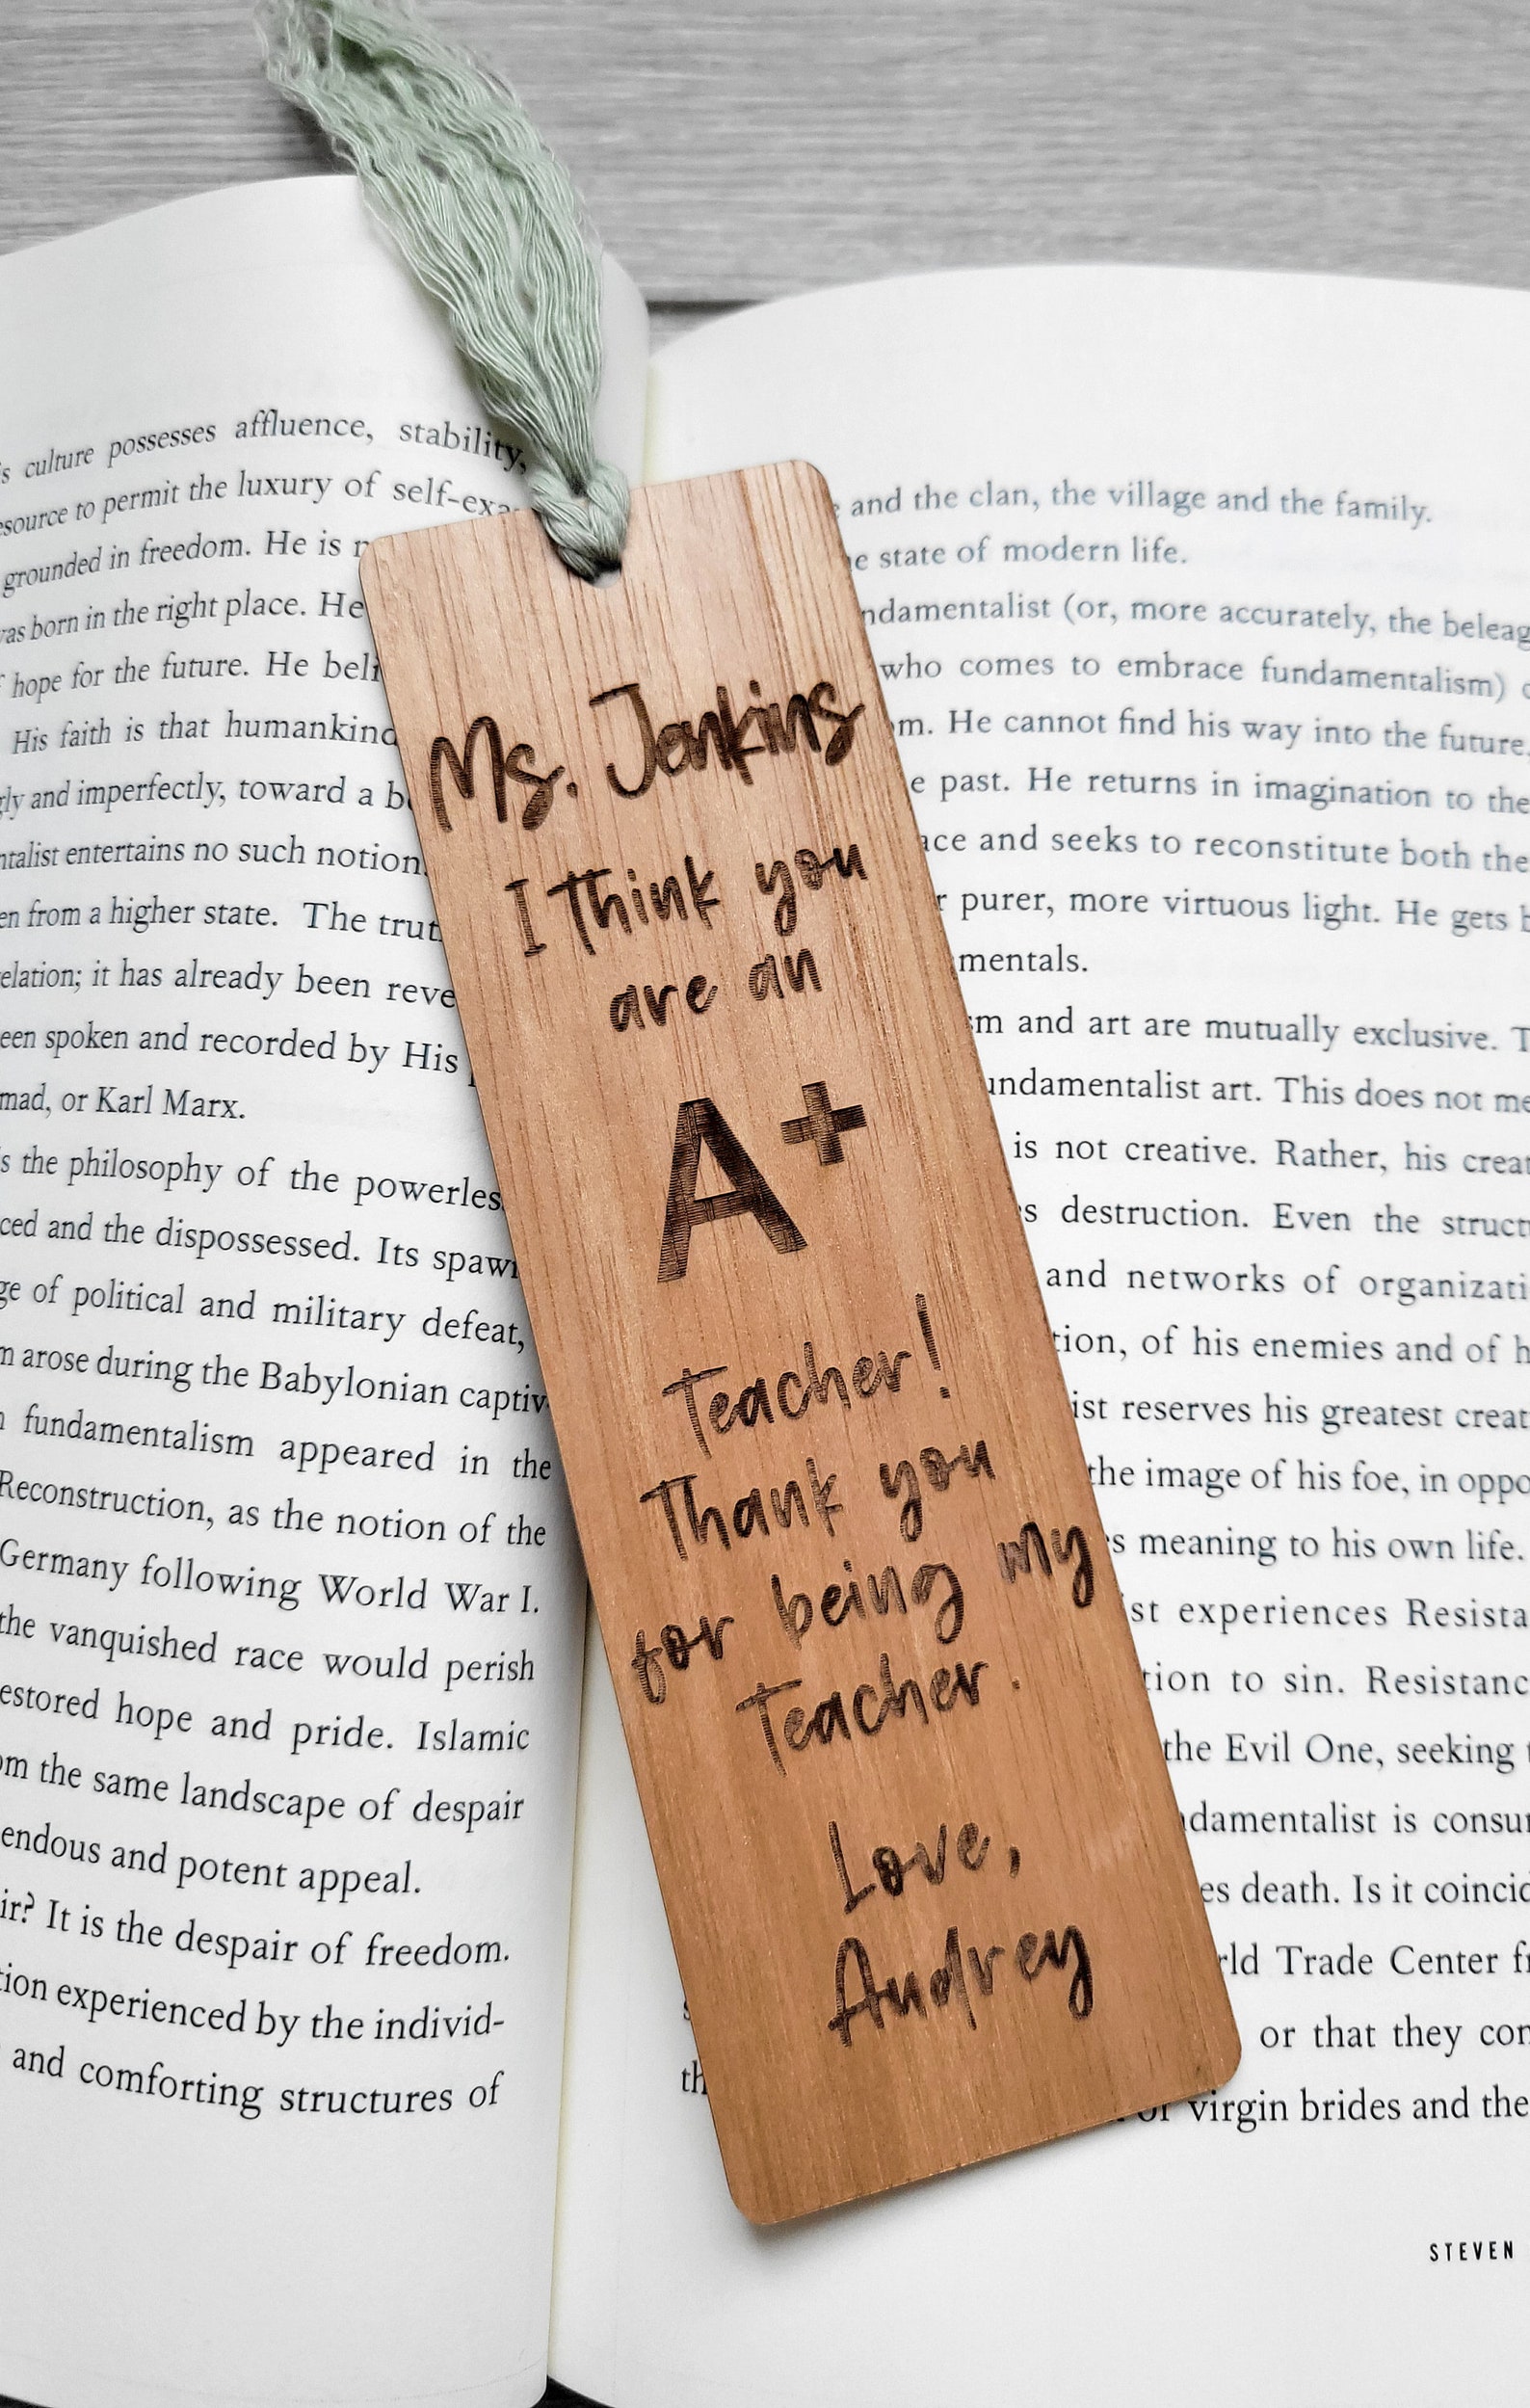 culture possesses affluence, stability,
to permit the luxury of self-exa
grounded in freedom. He is
was born in the right place. He
hope for the future. He beli
His faith is that humankind
and imperfectly, toward a
entertains no such notion.
from a higher state. The trut
it has already been reve
spoken and recorded by His
or Karl Marx.
the philosophy of the powerles
and the dispossessed. Its spaw
of political and military defeat,
arose during the Babylonian captiv
fundamentalism appeared in the
Reconstruction, as the notion of the
Germany following World War I.
the vanquished race would perish
estored hope and pride. Islamic
om the same landscape of despair
endous and potent appeal.
ir? It is the despair of freedom.
tion experienced by the individ-
and comforting structures of
Ms. Jenkins
I think you
are an
A+
Teacher!
Thank you
for being my
Teacher.
Love,
Audrey
and the clan, the village and the family.
state of modern life.
ndamentalist (or, more accurately, the beleag
who comes to embrace fundamentalism)
om. He cannot find his way into the future,
e past. He returns in imagination to the
ace and seeks to reconstitute both the
r purer, more virtuous light. He gets
mentals.
sm and art are mutually exclusive.
undamentalist art. This does not me
is not creative. Rather, his creat
destruction. Even the struct
and networks of organizati
tion, of his enemies and of
ist reserves his greatest creat
the image of his foe, in oppo
meaning to his own life.
st experiences Resista
tion to sin. Resistanc
the Evil One, seeking
ndamentalist is consu
es death. Is it coincid
rld Trade Center
or that they con
th or virgin brides and the
STEVEN